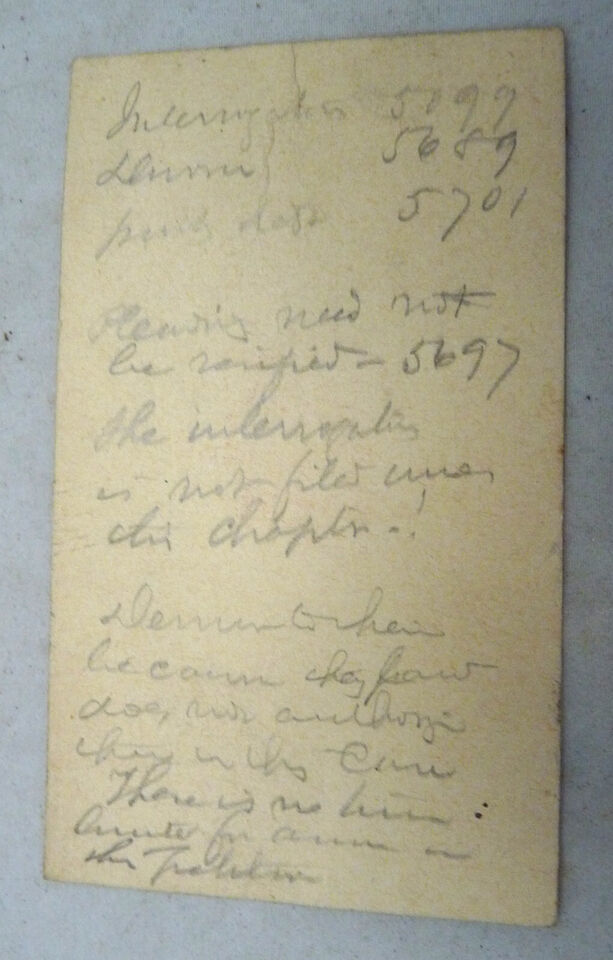 Interrogatories 5099
Demurrer 5689
5701
Pleading need not
be verified - 5697
The interrogatories
is not filed under
this chapter -!
Demur to them
because they
does not authorize
them in this case
There is no time
limited for answer in
the Petition